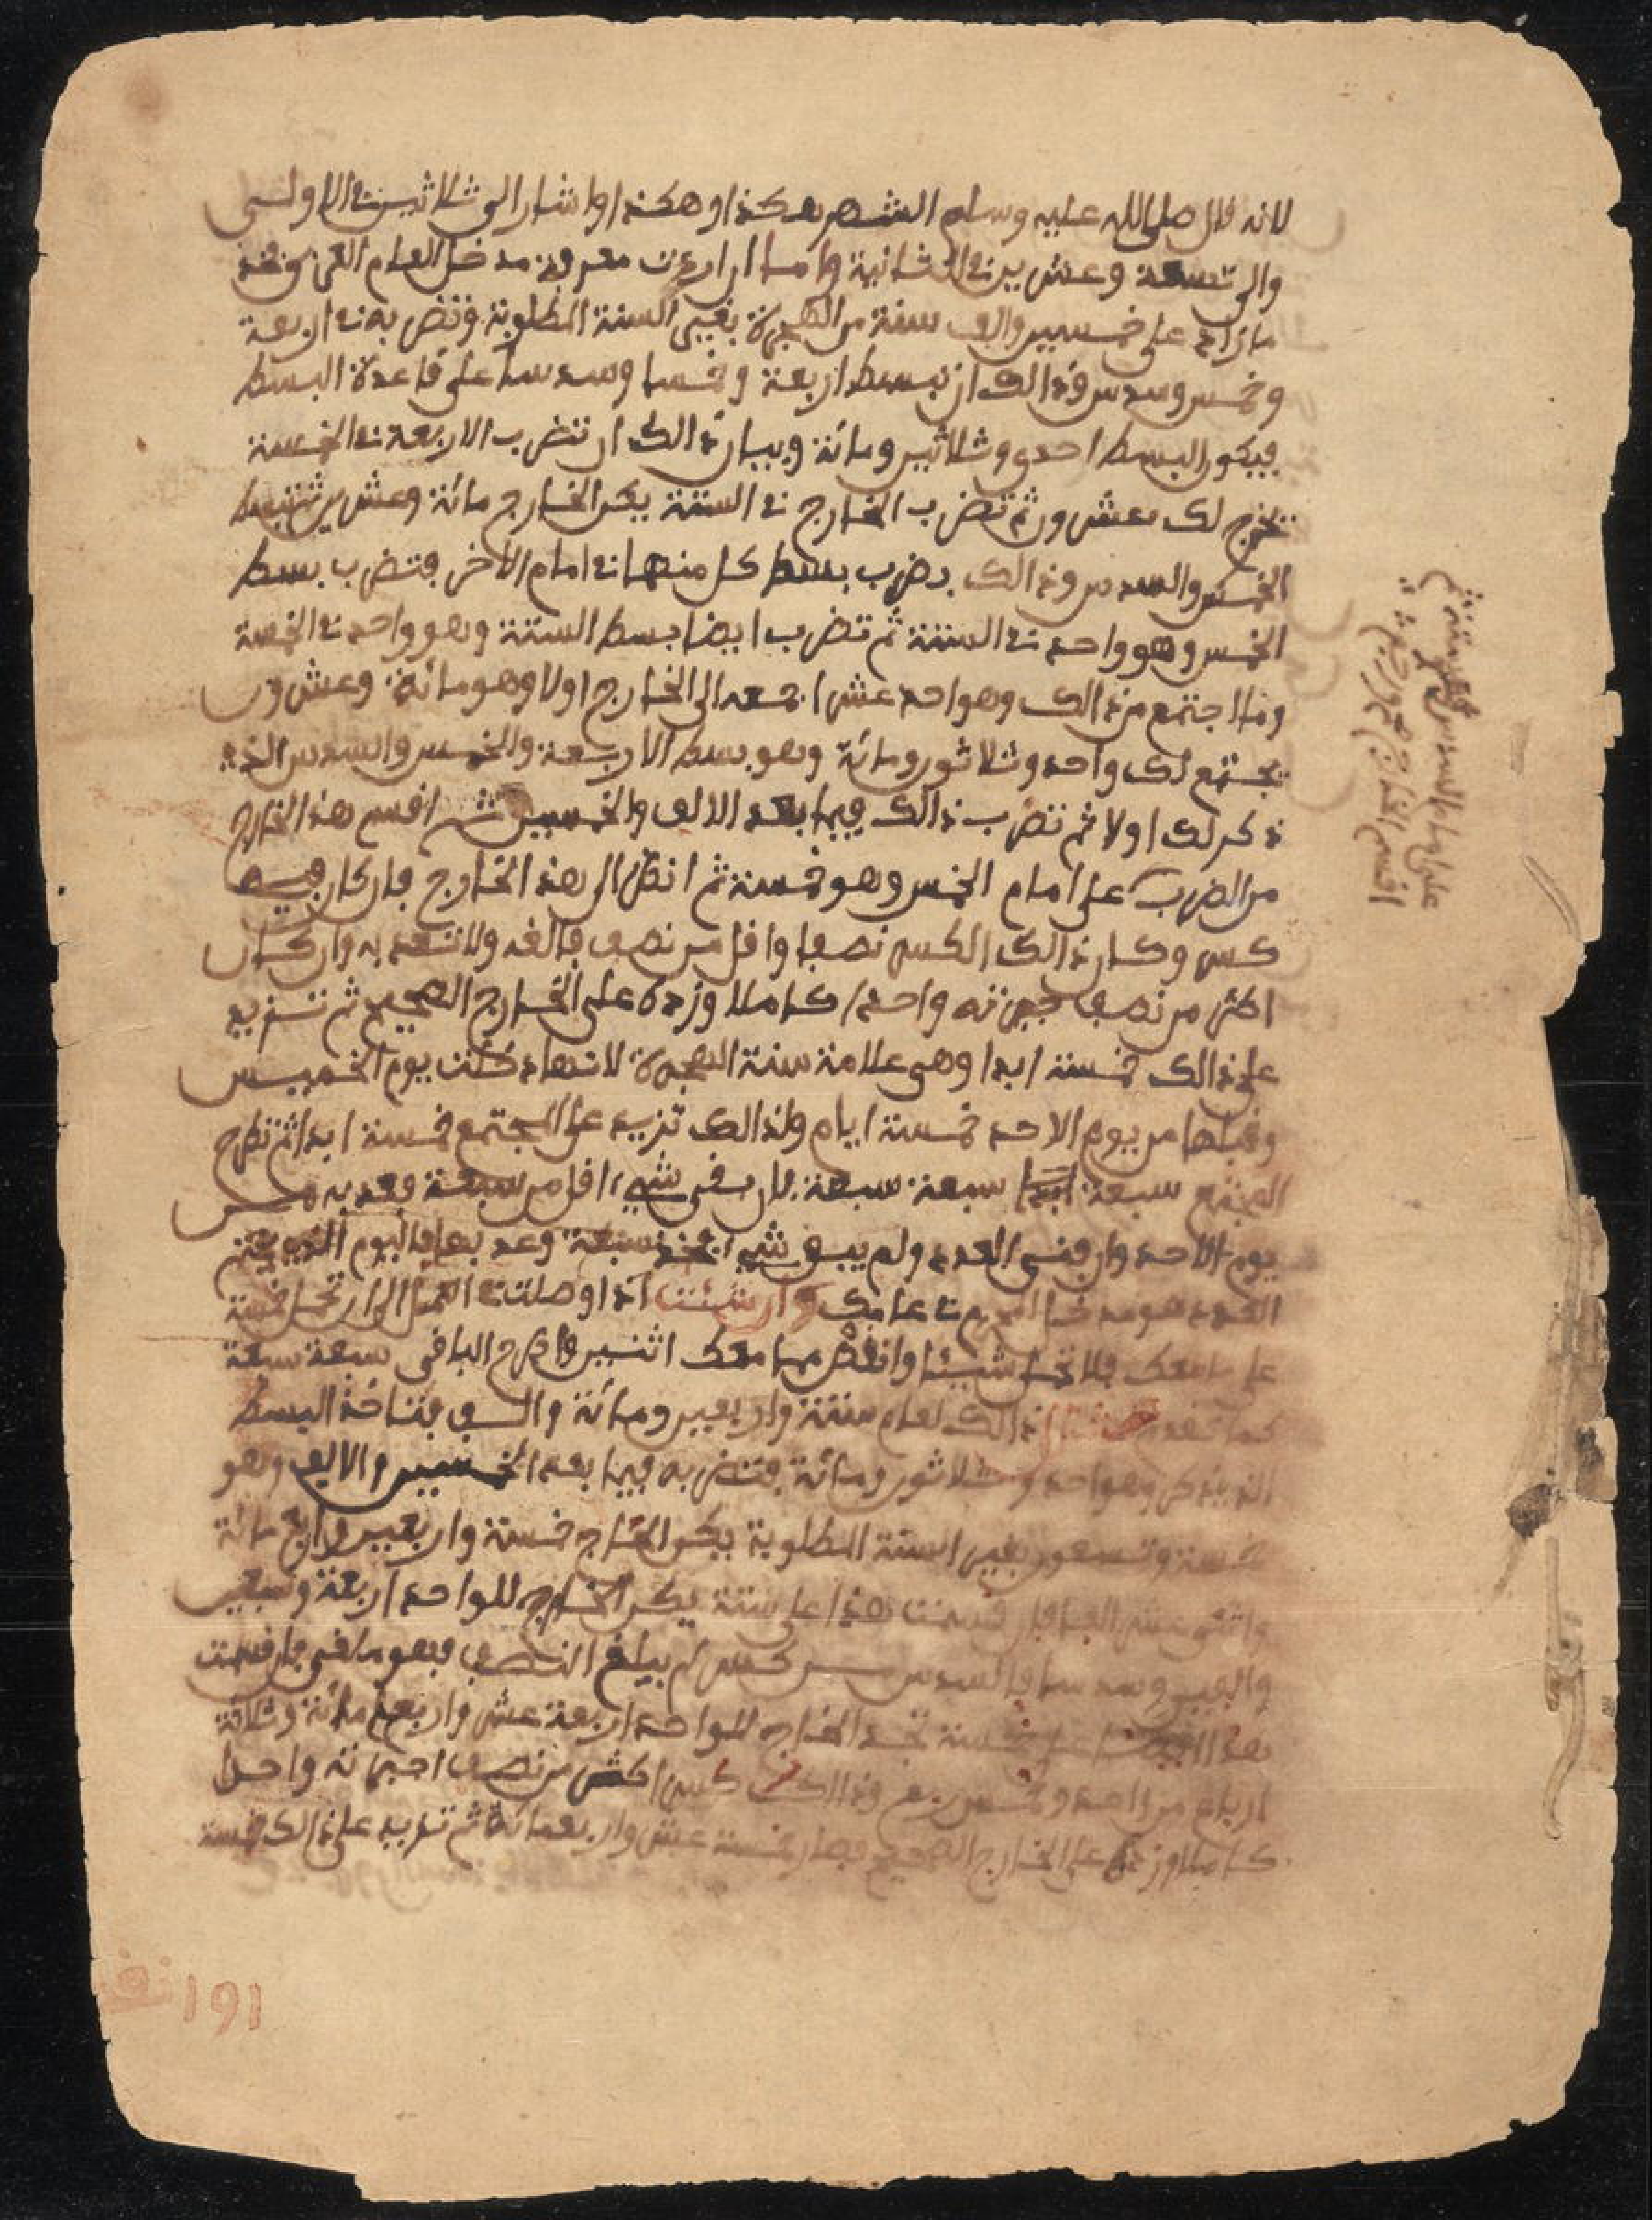 لانه قال صلى الله عليه وسلم الشهر هكذا وهكذا واشار الى ثلاثين في الاولى
والى تسعة وعشرين في الثانية واما ان اردت معرفة مدخل العام العربي فخذ
ما زاد على خمسين والف سنة من الهجرة بغير السنة المطلوبة وتضربه في اربعة
وخمس وسدس وذالك ان تبسط اربعة وخمسا وسدسا على قاعدة البسط
فيكون البسط احدى وثلاثين ومائة وبيان ذالك ان تضرب الاربعة في الخمسة
تخرج لك عشرون ثم تضرب الخارج في الستة يكن الخارج مائة وعشرين ثم تبسط
الخمس والسدس وذالك بضرب بسط كل منهما في امام الاخر فتضرب بسط
الخمس وهو واحد في الستة ثم تضرب ايضا بسط الستة وهو واحد في الخمسة
وما اجتمع من ذالك وهو احد عشر اجمعه الى الخارج اولا وهو مائة وعشرون
يجتمع لك واحد وثلاثون ومائة وهو بسط الاربعة والخمس والسدس الذي
ذكر لك اولا ثم تضرب ذالك فيما بعد الالف والخمسين ثم اقسم هذا الخارج
من الضرب على امام الخمس وهو خمسة ثم انظر الى هذا الخارج فان كان فيه
كسر وكان ذالك الكسر نصفا او اقل من نصف فالغه ولا تعتد به وان كان
اكثر من نصف جبرته واحدا كاملا وزده على الخارج الصحيح ثم تزيد
على ذالك خمسة ابدا وهي علامة سنة الهجرة لانها دخلت يوم الخميس
وقبلها من يوم الاحد خمسة ايام ولذالك تزيد على المجتمع خمسة ابدا ثم تطرح
المجتمع سبعة ابدا سبعة سبعة فان بقي شيء اقل من سبعة فعد به من
يوم الاحد وان فنى العدد ولم يبق شيء فخذ سبعة وعد بها فاليوم الذي يتم
العدد هو مدخل المحرم في عامك وان شئت اذا وصلت في العمل الى ان تحمل خمسة
على ما معك فلا تحمل شيئا وانقص مما معك اثنين واطرح الباقي سبعة سبعة
كما تقدم مثال ذالك لعام ستة واربعين ومائة والف فتاخذ البسط
الذي ذكر وهو واحد وثلاثون ومائة فتضربه فيما بعد الخمسين والالف وهو
خمسة وتسعون بغير السنة المطلوبة يكن الخارج خمسة واربعين واربع مائة
واثني عشر الفا فان قسمت هذا على ستة يكن الخارج للواحد اربعة وسبعين
والفين وسدسا فالسدس كسر لم يبلغ النصف فهو ملغى فان قسمت
هذا على خمسة تجد الخارج للواحد اربعة عشر واربع مائة وثلاثة
ارباع من واحد وخمس ربع وذالك كسر اكثر من نصف اجبرته واحدا
كاملا وزده على الخارج الصحيح فصار خمسة عشر واربعمائة ثم تزيد على ذالك خمسة